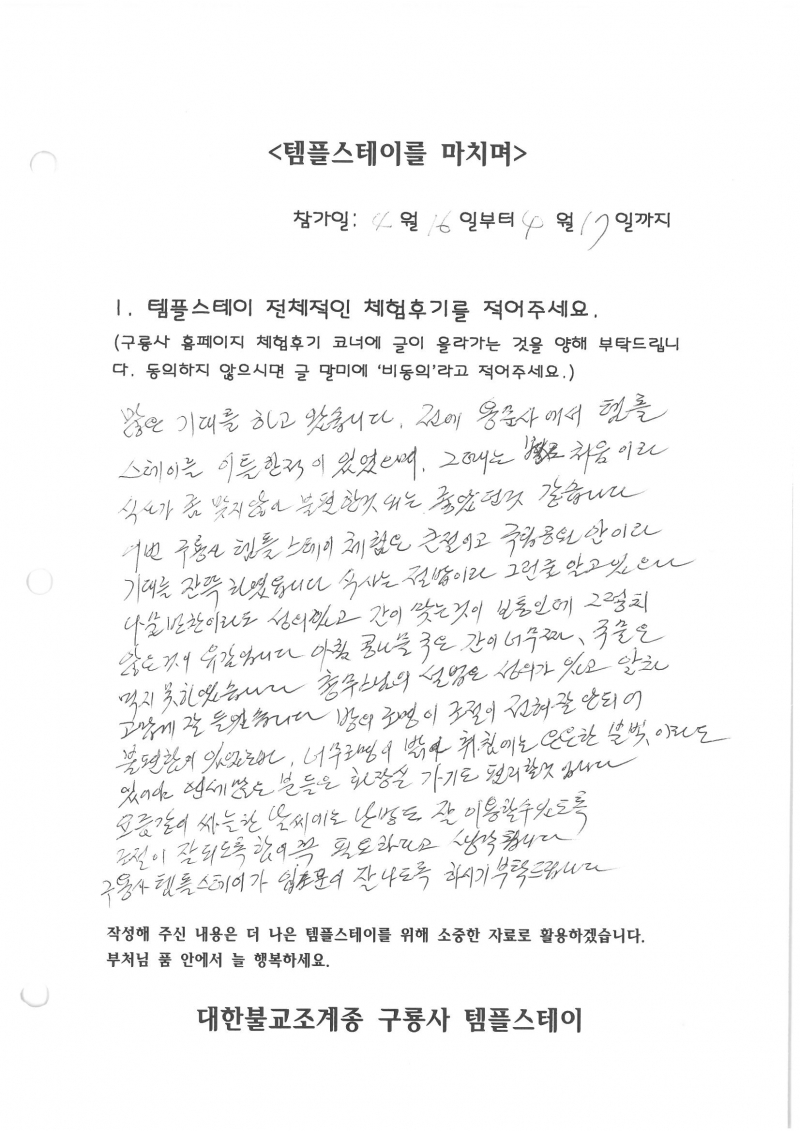 <템플스테이를 마치며>
참가일: 4 월 16 일부터 4 월 17 일까지
1. 템플스테이 전체적인 체험후기를 적어주세요.
(구룡사 홈페이지 체험후기 코너에 글이 올라가는 것을 양해 부탁드립니
다. 동의하지 않으시면 글 말미에 '비동의'라고 적어주세요.)
많은 기대를 하고 왔습니다. 전에 용문사에서 템플
스테이를 이틀한적이 있었으며, 그때는 처음이라
식사가 좀 맞지않아 불편한것 외는 좋았던것 같습니다
이번 구룡사 템플스테이 체험은 큰절이고 국립공원 안이라
기대를 잔뜩 하였읍니다 식사는 절밥이라 그런줄 알고있으나
나물반찬이라도 성의있고 간이 맞는것이 보통인데 그렇치
않은것이 유감입니다 아침 콩나물국은 간이 너무짜, 국물은
먹지 못하였습니다 총무스님의 설법은 성의가 있고 알차
고맙게 잘 들었습니다 방의 조명이 조절이 전혀 잘 안되어
불편함이 있었으며, 너무조명이 밝아 취침에는 은은한 불빛이라도
있어야 연세많은 분들은 화장실 가기도 편리할것 입니다
요즘같이 싸늘한 날씨에도 난방도 잘 이용할수있도록
조절이 잘되도록함이 꼭 필요하다고 생각합니다
구룡사 템플스테이가 입소문이 잘나도록 하시기 부탁드립니다
작성해 주신 내용은 더 나은 템플스테이를 위해 소중한 자료로 활용하겠습니다.
부처님 품 안에서 늘 행복하세요.
대한불교조계종 구룡사 템플스테이